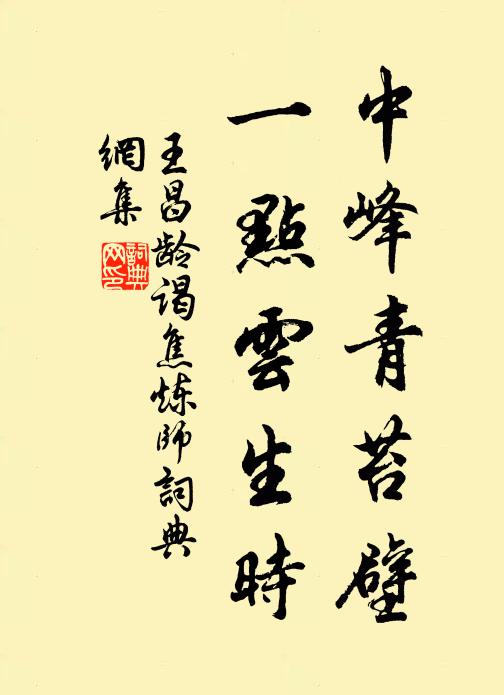 中峰青苔壁
一點雲生時
王昌龄谒焦炼師詞典
網集
詞典网印